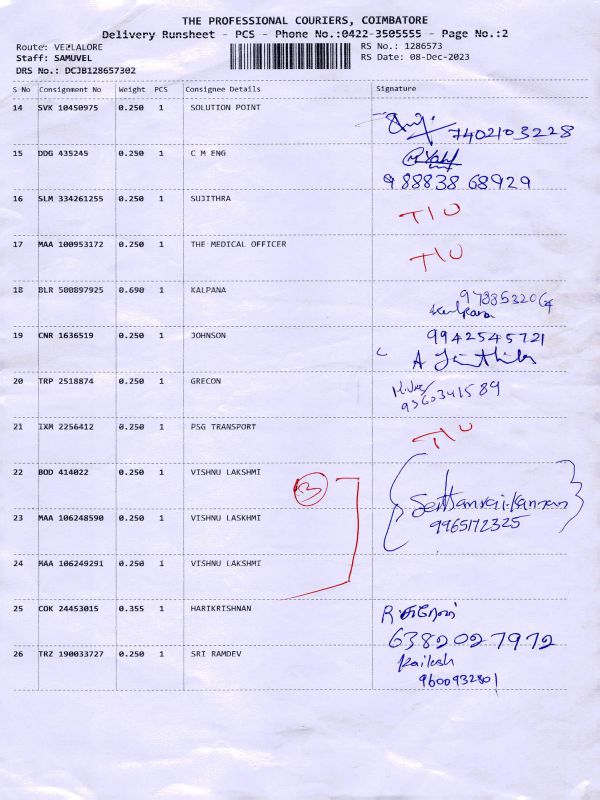 THE PROFESSIONAL COURIERS, COIMBATORE
Delivery Runsheet - PCS - Phone No.:0422-3505555 - Page No.:2
Route: VELLALORE RS No.: 1286573
Staff: SAMUVEL RS Date: 08-Dec-2023
DRS No.: DCJB128657302
S No Consignment No Weight PCS Consignee Details Signature
14 SVK 10450975 0.250 1 SOLUTION POINT
7402103228
15 DDG 435245 0.250 1 C M ENG
98883868929
16 SLM 334261255 0.250 1 SUJITHRA T/U
17 MAA 100953172 0.250 1 THE MEDICAL OFFICER T/U
18 BLR 500897925 0.690 1 KALPANA
Kalpana
19 CNR 1636519 0.250 1 JOHNSON 9942545721
A
20 TRP 2518874 0.250 1 GRECON
9360341589
21 IXM 2256412 0.250 1 PSG TRANSPORT T/U
22 BOD 414022 0.250 1 VISHNU LAKSHMI
3
23 MAA 106248590 0.250 1 VISHNU LASKHMI
9965172325
24 MAA 106249291 0.250 1 VISHNU LAKSHMI
25 COK 24453015 0.355 1 HARIKRISHNAN R
6382027972
26 TRZ 190033727 0.250 1 SRI RAMDEV Kailesh
9600932801